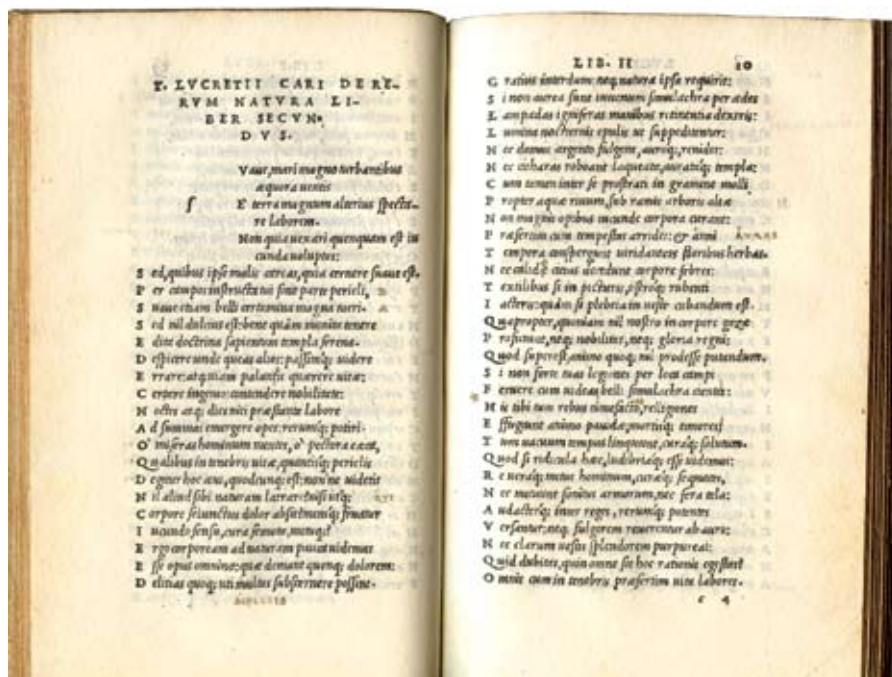 T. LVCRETII CARI DE RE-
RVM NATVRA LI-
BER SECVN-
DVS.
Vaue, mari magno turbantibus
æquora uentis
ſ E terra magnum alterius ſpecta-
re laborem.
Non quia uexari quenquam eſt iu
cunda uoluptas:
S ed, quibus ipſe malis careas, quia cernere ſuaue eſt.
P er campos inſtructa tui ſine parte pericli,
S uaue etiam belli certamina magna tueri.
S ed nil dulcius eſt: bene quàm munita tenere
E dita doctrina ſapientum templa ſerena.
D eſpicere unde queas alios: paſſimq; uidere
E rrare: atq; uiam palantis quærere uitæ:
C ertare ingenio: contendere nobilitate:
N octes atq; dies niti præſtante labore
A d ſummas emergere opes: rerumq; potiri.
O' miſeras hominum mentes, o' pectora cæca,
Q ualibus in tenebris uitæ, quantiſq; periclis
D egitur hoc æui, quodcunq; eſt: nonne uidetis
N il aliud ſibi naturam latrare: utq;
C orpore ſeiunctus dolor abſit: menſq; fruatur
I ucundo ſenſu, cura ſemota, metuq;?
E rgo corpoream ad naturam pauca uidemus
E ſſe opus omnino: quæ demant quenq; dolorem:
D elitias quoq; uti multas ſubſternere poſſint.
LIB. II 10
G ratius interdum: neq; natura ipſa requirit:
S i non aurea ſunt iuuenum ſimulachra per ædes
L ampadas igniferas manibus retinentia dextris:
L umina nocturnis epulis ut ſuppeditentur:
N ec domus argento fulgens, auroq; renidet:
N ec citharas reboant laqueata, aurataq; templa:
C um tamen inter ſe proſtrati in gramine molli
P ropter aquæ riuum, ſub ramis arboris altæ
N on magnis opibus iucunde corpora curant:
P ræſertim cum tempeſtas arridet: & anni
T empora conſpergunt uiridantes floribus herbas.
N ec calidæ citius decedunt corpore febres:
T extilibus ſi in picturis, oſtroq; rubenti
I acteris: quàm ſi plebeia in ueſte cubandum eſt.
Q uapropter, quoniam nil noſtro in corpore gazæ
P roficiunt, neq; nobilitas, neq; gloria regni:
Q uod ſupereſt, animo quoq; nil prodeſſe putandum.
S i non forte tuas legiones per loca campi
F eruere cum uideas belli ſimulachra cientis:
H is tibi tum rebus timefactæ, religiones
E ffugiunt animo pauidæ, mortiſq; timores
T um uacuum tempus linquunt, curaq; ſolutum.
Q uod ſi ridicula hæc, ludibriaq; eſſe uidemus:
R e ueraq; metus hominum, curæq; ſequaces,
N ec metuunt ſonitus armorum, nec fera tela:
A udacterq; inter reges, rerumq; potentes
V erſantur: neq; fulgorem reuerentur ab auro:
N ec clarum ueſtis ſplendorem purpureai:
Q uid dubitas, quin omne ſit hoc rationis egeſtas?
O mnis cum in tenebris præſertim uita laboret.
c 4